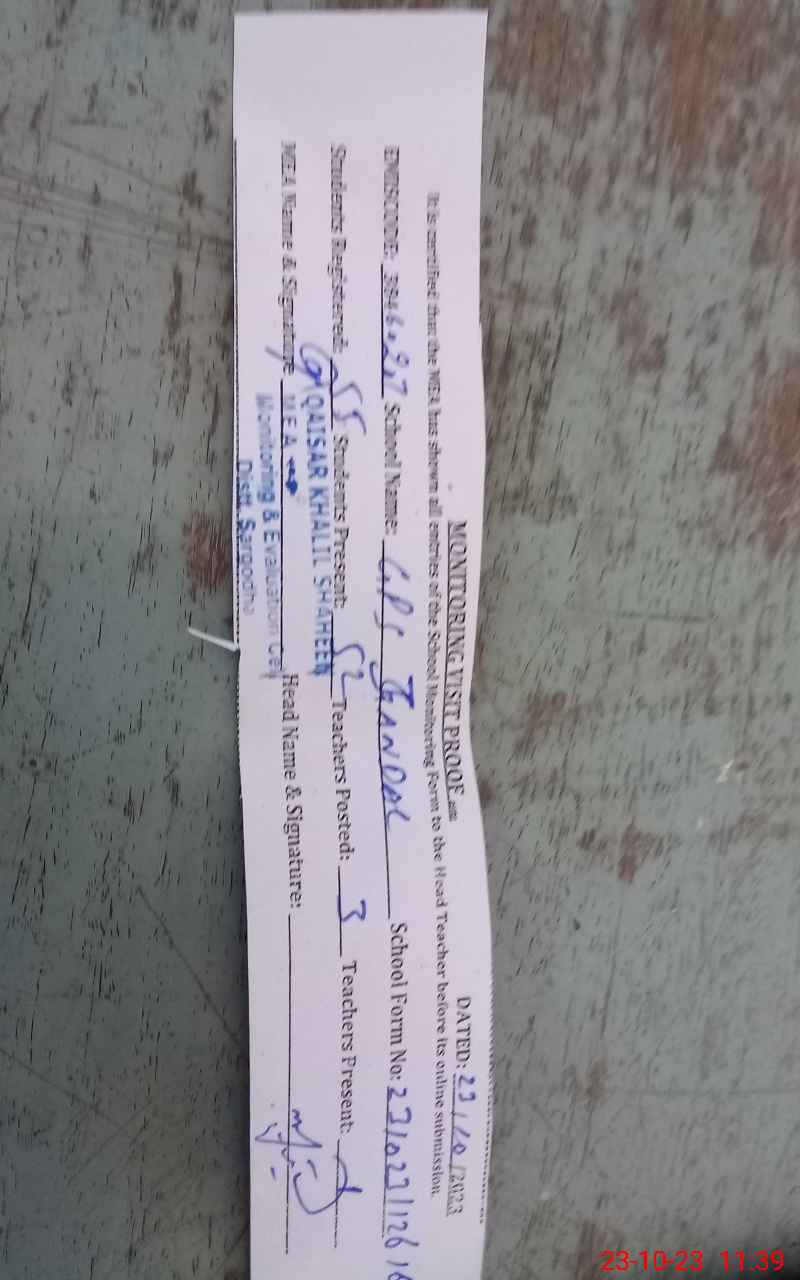 MONITORING VISIT PROOF
DATED: 23/10/2023
It is certified that the MEA has shown all entries of the School Monitoring Form to the Head Teacher before its online submission.
EMISCODE: School Name: GPS JHANDAL School Form No:
Students Registered: 55 Students Present: 52 Teachers Posted: 3 Teachers Present:
MEA Name & Signature Head Name & Signature:
QAISAR KHALIL SHAHEEN
M E A
Monitoring & Evaluation Cell
Distt. Sargodha
23-10-23 11:39